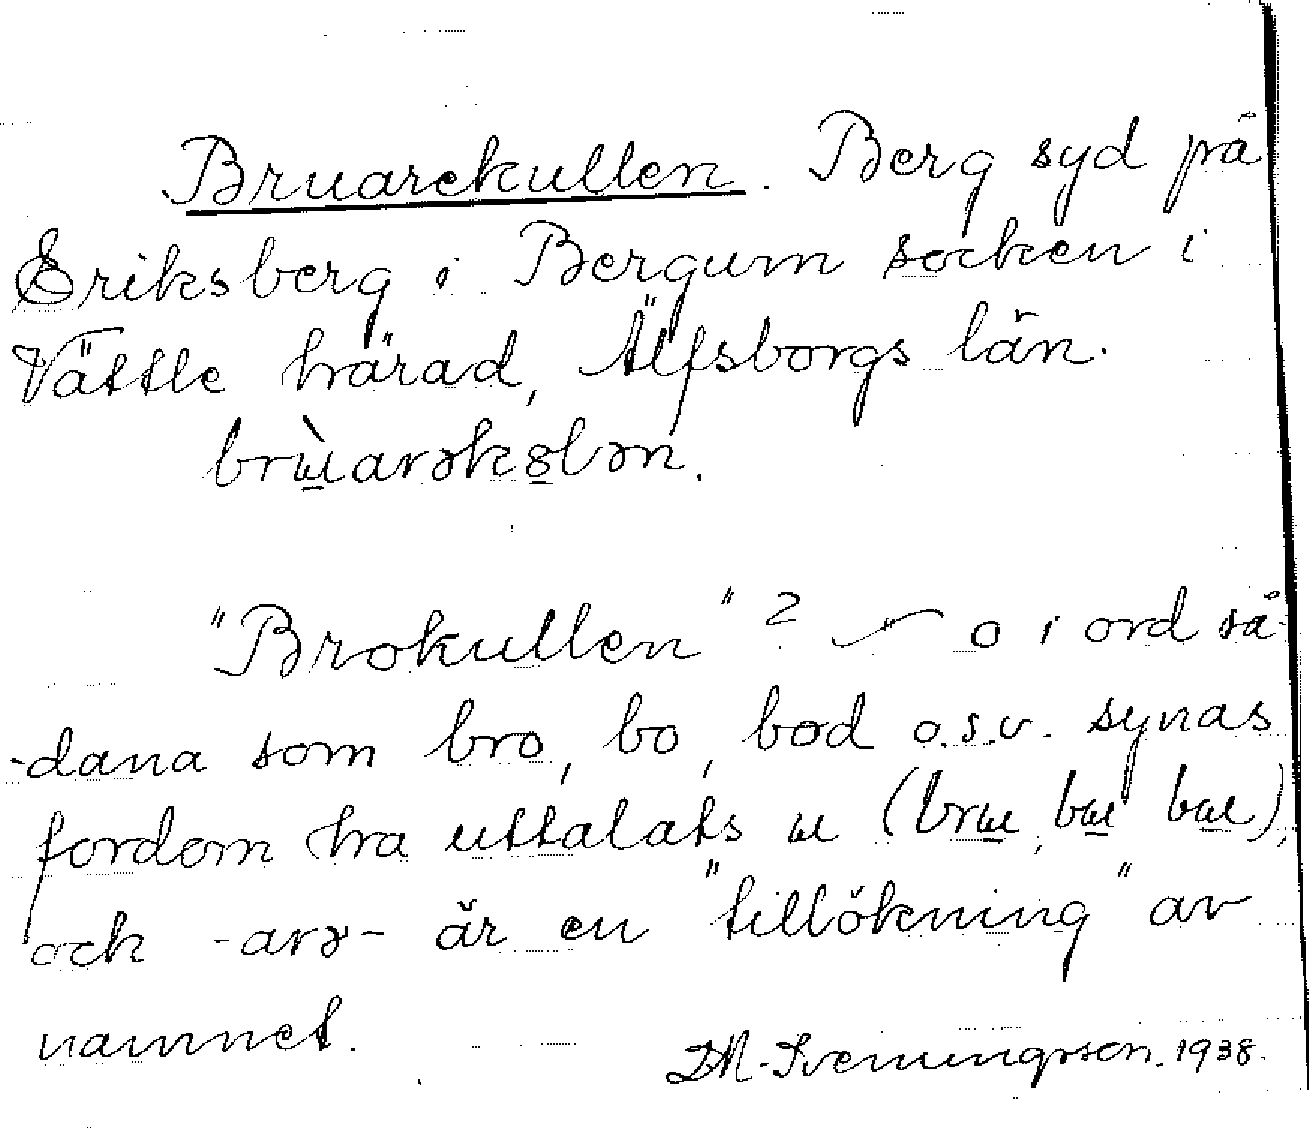 Bruarekullen. Berg syd på
Eriksberg i Bergum socken i
Vättle härad, Älfsborgs län.
brɯ̀arəkȣlən.
"Brokullen"? o i ord så-
-dana som bro, bo, bod o.s.v. synas
fordom ha uttalats ɯ (brɯ, bɯ bɯ),
och -arə- är en "tillökning" av
namnet.
1938.